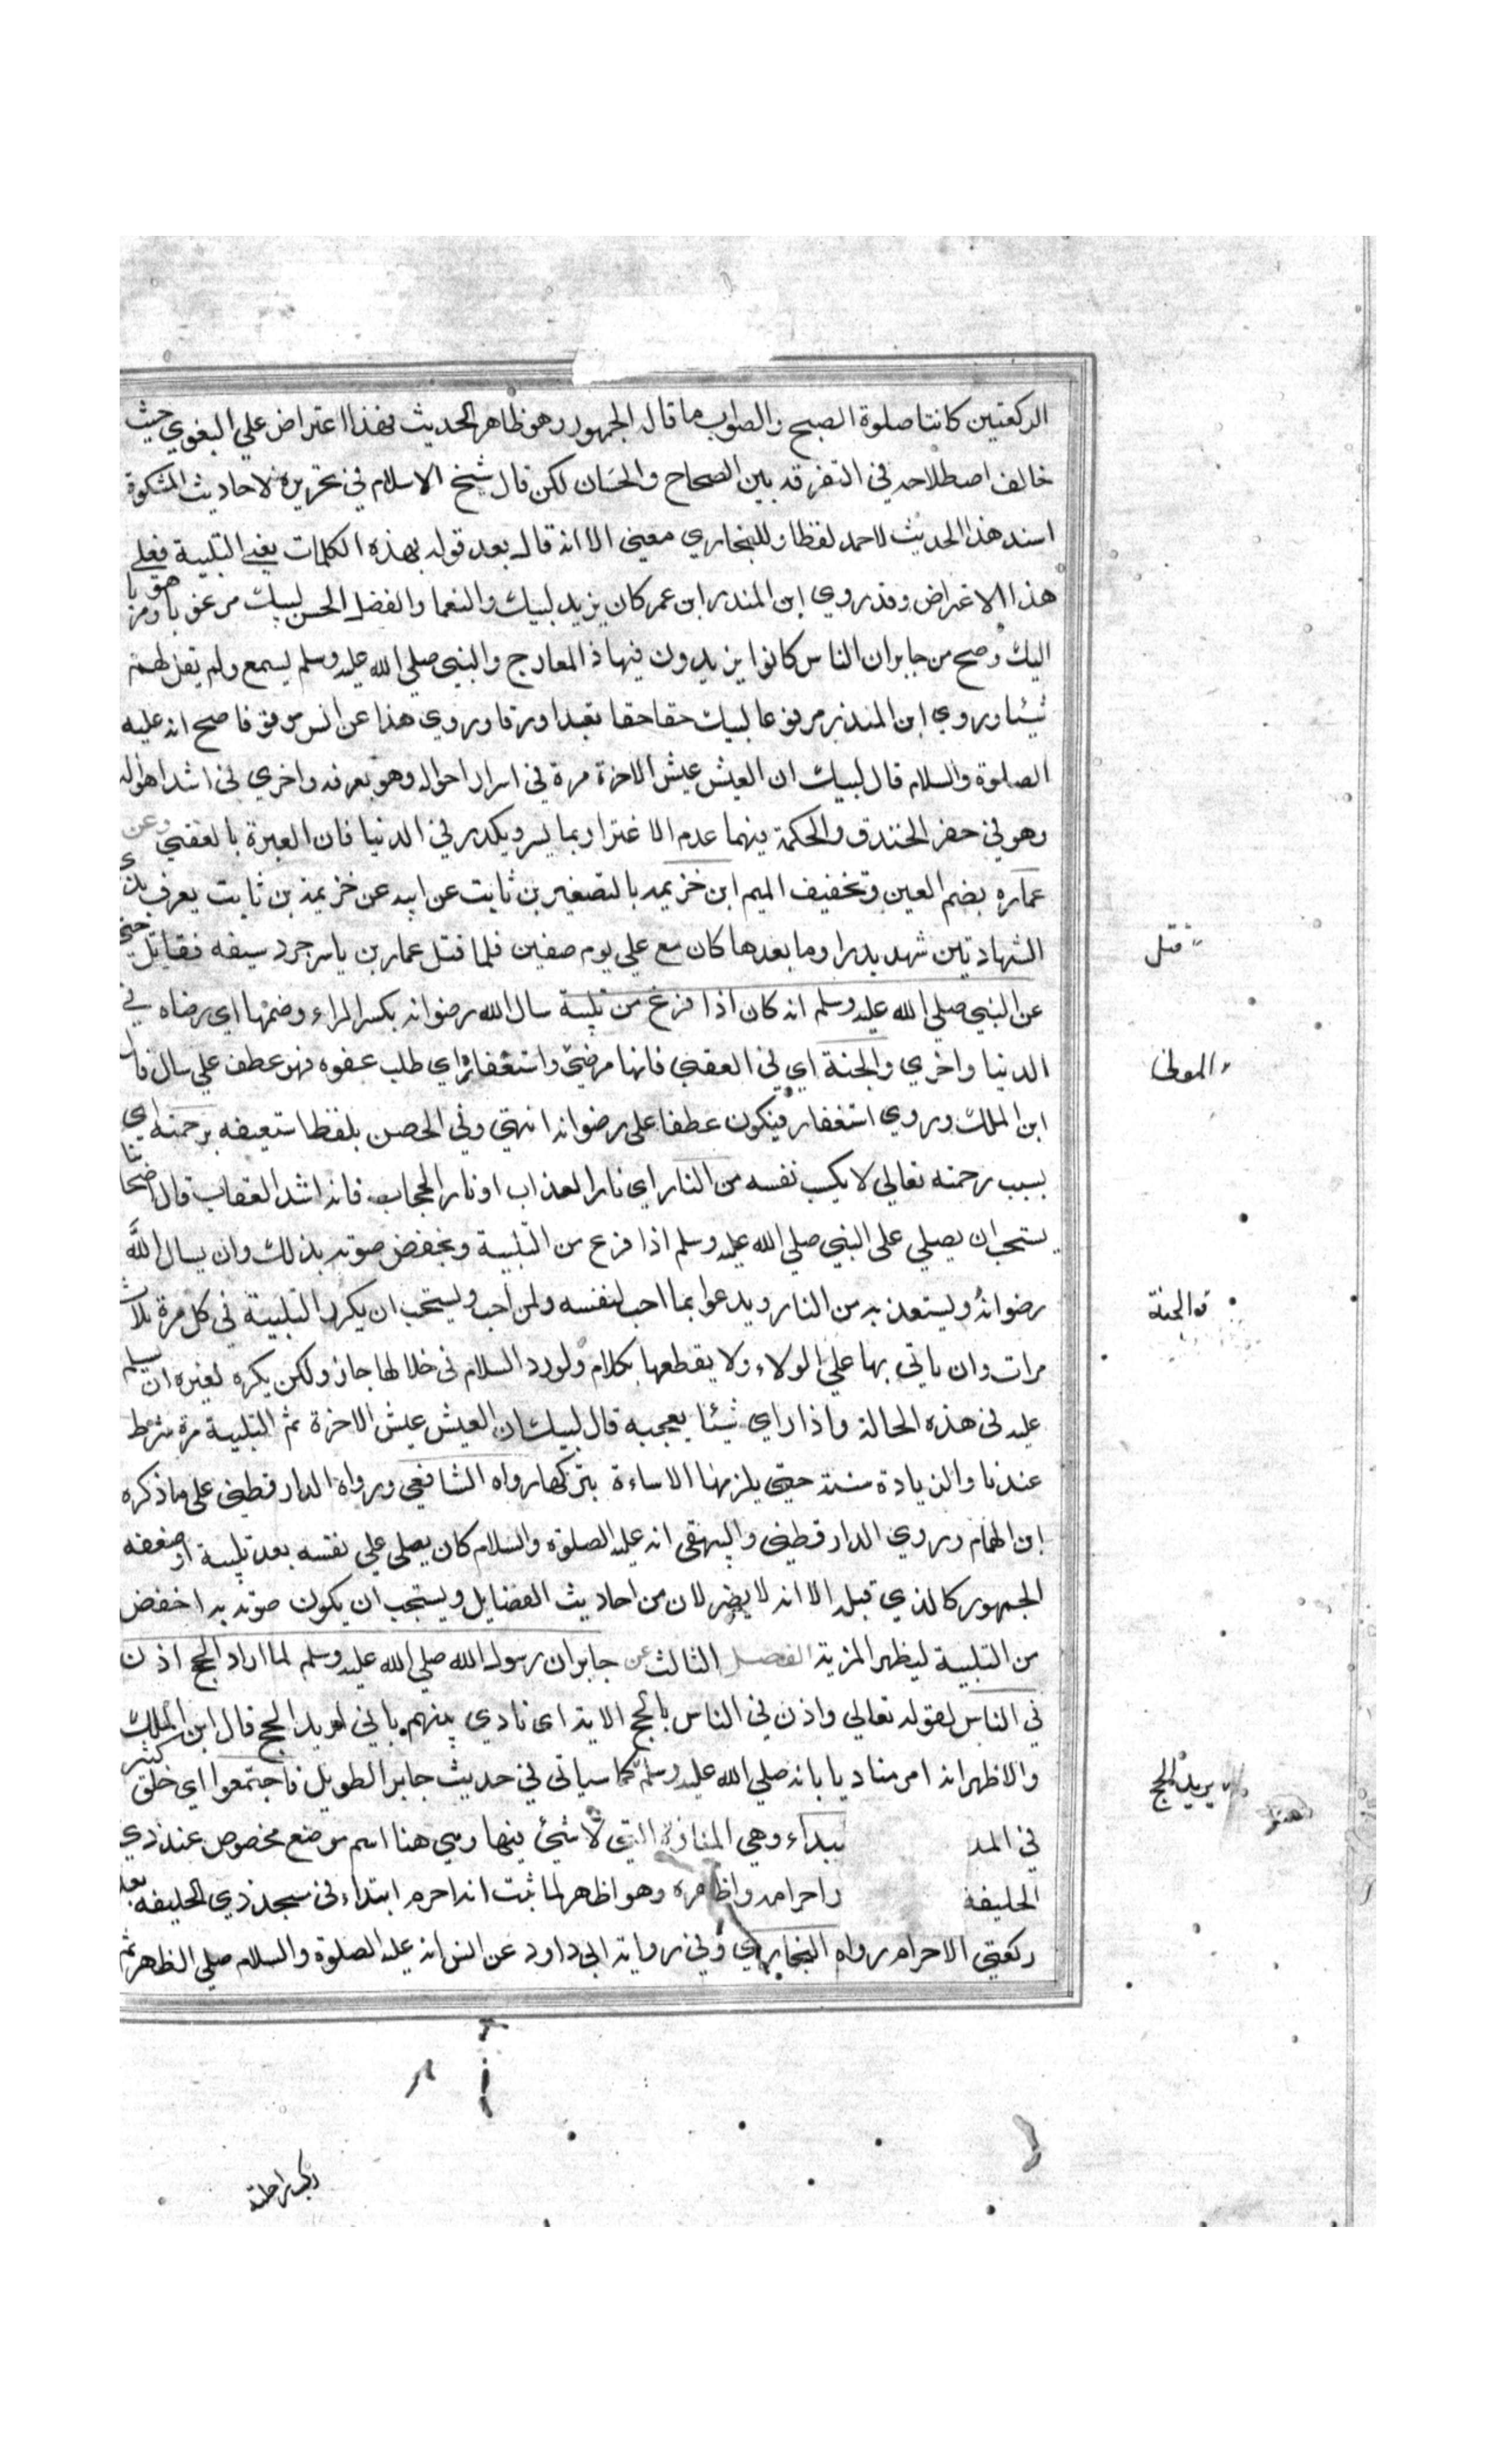 الركعتين كانتا صلوة الصبح والصواب ما قاله الجمهور وهو ظاهر الحديث فهذا اعتراض علي البغوي حيث
خالف اصطلاحه في التفرقة بين الصحاح والحسان لكن قال شيخ الاسلام في تحريره لاحاديث المشكوة
اسند هذا الحديث لاحمد لفظا وللبخاري معني الا انه قال بعد قوله بهذه الكلمات يعني التلبية فعلي
هذا الاعتراض وقد روي ابن المنذر ابن عمر كان يزيد لبيك والنعما والفضل الحسن لبيك مرغوبا ومرهوبا
اليك وصح من جابر ان الناس كانوا يزيدون فيها ذا المعارج والنبي صلي الله عليه وسلم يسمع ولم يقل لهم
شيئا وروي ابن المنذر مرفوعا لبيك حقا حقا تعبدا ورقا وروي هذا عن انس موقوفا صح انه عليه
الصلوة والسلام قال لبيك ان العيش عيش الاخرة مرة في اسر احواله وهو بعرفة واخري في اشد اهواله
وهو في حفر الخندق والحكمة فيهما عدم الاغترار بما يسر ويكدر في الدنيا فان العبرة بالعقبي وعن
عماره بضم العين وتخفيف الميم ابن خزيمه بالتصغير بن ثابت عن ابيه عن خزيمة بن ثابت يعرف بذي
الشهادتين شهد بدرا وما بعدها كان مع علي يوم صفين فلما قتل عمار بن ياسر جرد سيفه فقاتل حتي
قتل
عن النبي صلي الله عليه وسلم انه كان اذا فرغ من تلبية سال الله رضوانه بكسر الراء وضمها اي رضاه في
الدنيا واخري والجنة اي في العقبي فانها مرضي واستغفاره اي طلب عفوه فهو عطف علي سال قال
المولي
ابن الملك وروي استغفار فيكون عطفا علي رضوانه انتهي وفي الحصن بلفظ استعيفه برحمته اي
بسبب رحمته تعالي لا بكسب نفسه من النار اي نار العذاب او نار الحجاب فانه اشد العقاب قال اصحابنا
يستحب ان يصلي علي النبي صلي الله عليه وسلم اذا فرغ من التلبية ويخفض صوته بذلك وان يسال الله
رضوانه ويستعذ به من النار ويدعوا بما احب لنفسه ولمن احب ويستحب ان يكرر التلبية في كل مرة ثلاث
والجنة
مرات وان ياتي بها علي الولاء ولا يقطعها بكلام ولو رد السلام في خلالها جاز ولكن يكره لغيره ان يسلم
عليه في هذه الحالة واذا راي شيئا يعجبه قال لبيك ان العيش عيش الاخرة ثم التلبية مرة شرط
عندنا والزيادة سنة حتي يلزمها الاساءة بتركها رواه الشافعي ورواه الدارقطني علي ما ذكره
ابن الهمام وروي الدارقطني والبيهقي انه عليه الصلوة والسلام كان يصلي علي نفسه بعد تلبية وضعفه
الجمهور كالذي قبله الا انه لا يضر لان من احاديث الفضايل ويستحب ان يكون صوته به اخفض
من التلبية ليظهر المزية الفصل الثالث عن جابر ان رسول الله صلي الله عليه وسلم لما اراد الحج اذن
في الناس لقوله تعالي واذن في الناس بالحج الاية اي نادي بينهم باني اريد الحج قال ابن الملك
والاظهر انه امر مناديا بانه صلي الله عليه وسلم كما سياتي في حديث جابر الطويل فاجتمعوا اي خلق كثير
يريد الحج
في المد بيداء وهي المفازة التي لا شئ فيها وهي هنا اسم موضع مخصوص عند ذي
الحليفة واحرامه واظهره وهو اظهر لما ثبت انه احرم ابتداء في مسجد ذي الحليفه بعد
ركعتي الاحرام رواه البخاري وفي رواية ابي داود عن انس انه عليه الصلوة والسلام صلي الظهر ثم
ركب راحلته